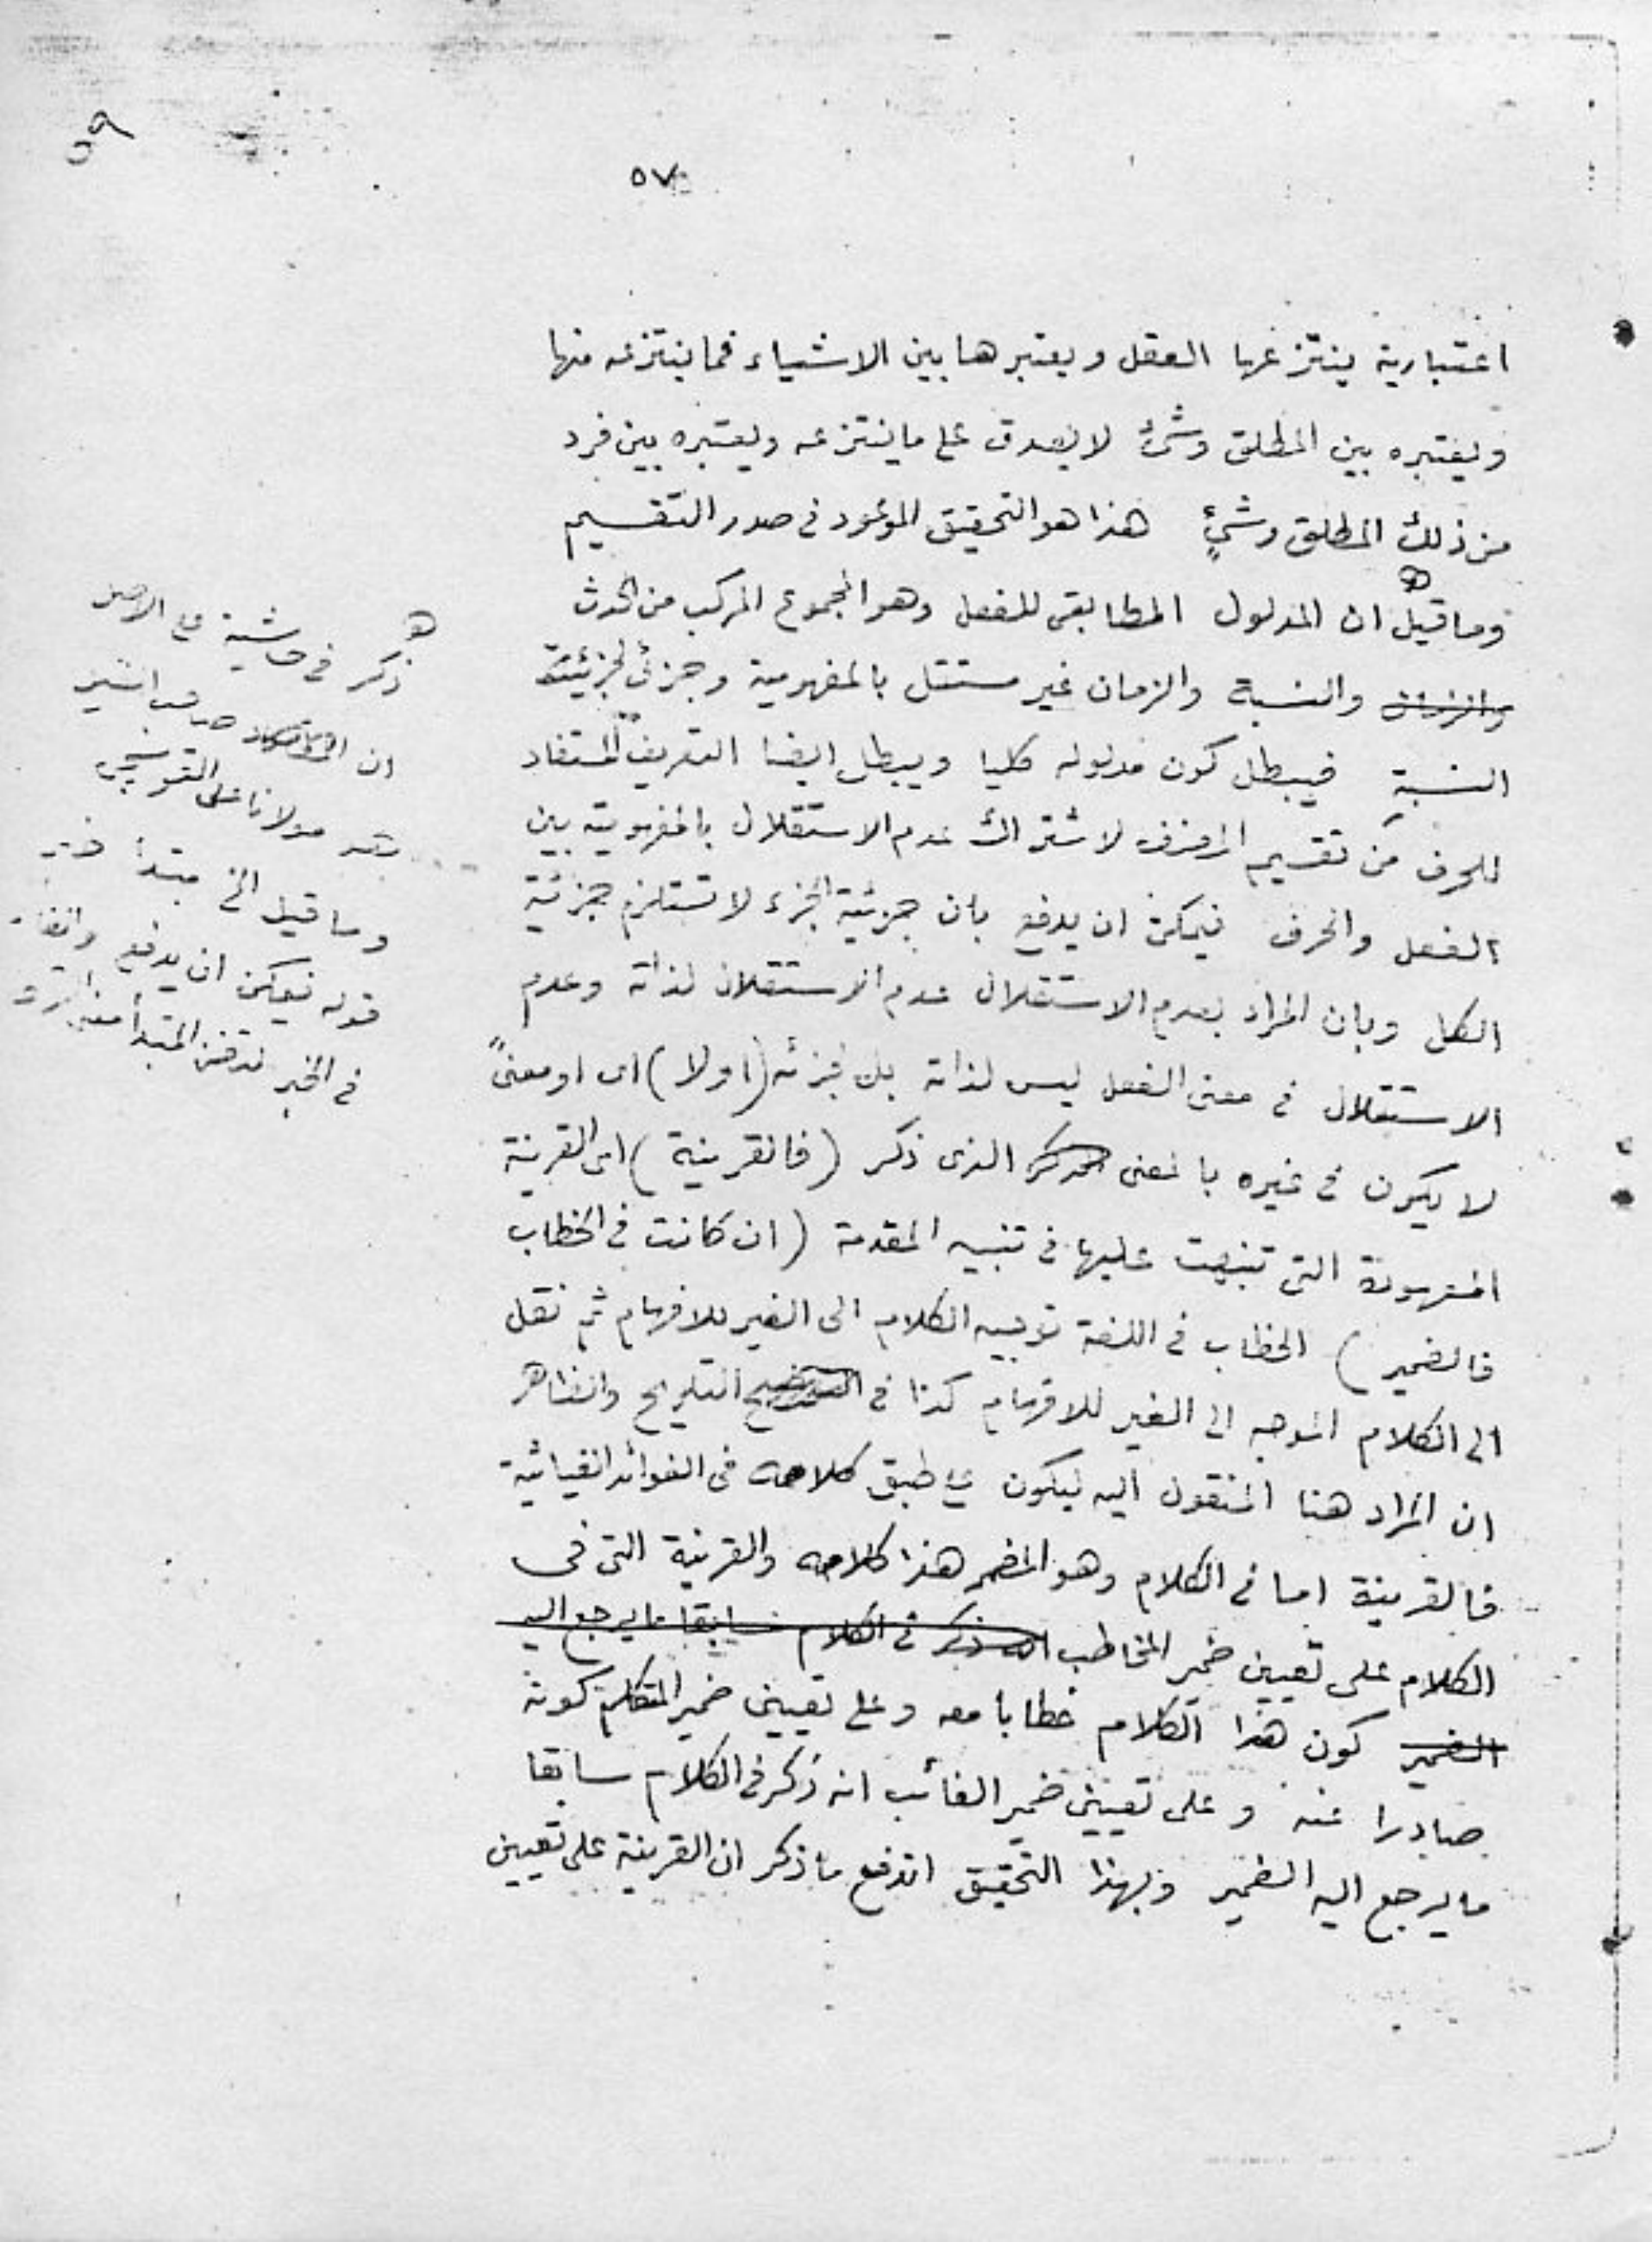 ٥٧
٥٩
اعتبارية ينتزعها العقل ويعتبرها بين الاشياء فما ينتزعه منها
ويعتبره بين المطلق وشئ لا يصدق على ما ينتزعه ويعتبره بين فرد
من ذلك المطلق وشئٍ هذا هو التحقيق الموعود فى صدر التقسيم
وما قيل ان المدلول المطابقى للفعل وهو المجموع المركب من الحدث
والزمان والنسبة والزمان غير مستقل بالمفهومية وجزئى لجزئية
النسبة فيبطل كون مدلوله كليا ويبطل ايضا التعريف المستفاد
للحرف من تقسيم المصنف لاشتراك عدم الاستقلال بالمفهومية بين
الفعل والحرف فيمكن ان يدفع بان جزئية الجزء لا تستلزم جزئية
الكل وبان المراد بعدم الاستقلال عدم الاستقلال لذاته وعدم
الاستقلال فى معنى الفعل ليس لذاته بل لجزئه (اولا) اى او معنىً
لا يكون فى غيره بالمعنى الذى ذكر (فالقرينة) اى القرينة
المفهومة التى تنبهت عليها فى تنبيه المقدمة (ان كانت فى الخطاب
فالضمير) الخطاب فى اللغة توجيه الكلام الى الغير للافهام ثم نقل
الى الكلام الموجه الى الغير للافهام كذا فى التلويح والظاهر
ان المراد هنا المنقول اليه ليكون على طبق كلامه فى الفوائد الغياثية
فالقرينة اما فى الكلام وهو المضمر هذا كلامه والقرينة التى فى
الكلام على تعيين ضمير المخاطب ذكر فى الكلام سابقا ما يرجع اليه
الضمير كون هذا الكلام خطابا معه وعلى تعيين ضمير المتكلم كونه
صادرا عنه وعلى تعيين ضمير الغائب انه ذكر فى الكلام سابقا
ما يرجع اليه الضمير وبهذا التحقيق اندفع ما ذكر ان القرينة على تعيين
ذكر فى حاشية على
ان
مولانا على القوشجى
وما قيل الخ مبتدأ خبره
قوله فيمكن ان يدفع
فى الخبر لتضمن المبتدأ معنى الشرط